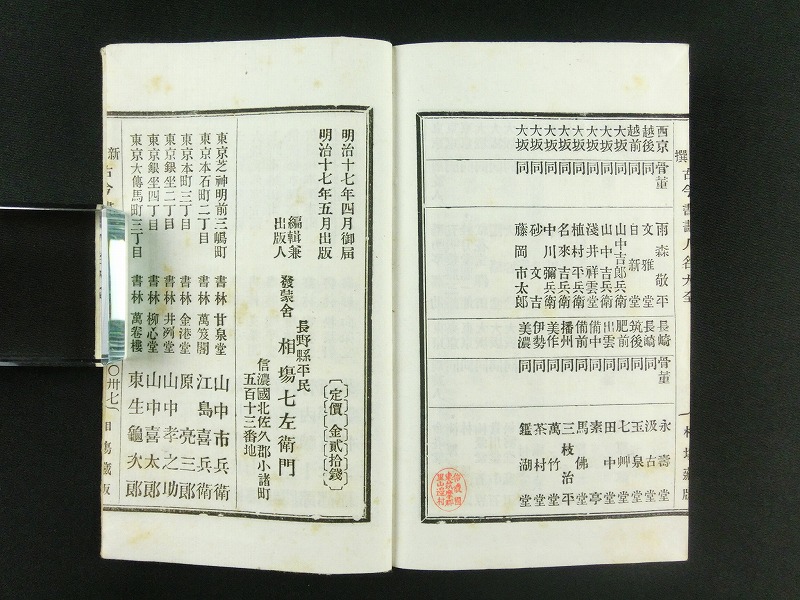 西京 骨董 雨森敬平
越後 同 文雅堂
越前 同 日新堂
大坂 同 山中吉郎兵衛
大坂 同 山中吉兵衛
大坂 同 淺井祥雲堂
大坂 同 植村平兵衛
大坂 同 名來吉兵衛
大坂 同 中川彌兵衛
大坂 同 砂文吉
大坂 同 藤岡市太郎
長崎 骨董 永壽堂
長崎 同 汲古堂
筑後 同 玉泉堂
肥前 同 七艸堂
出雲 同 田中堂
備中 同 素亭
備前 同 馬佛堂
播州 同 三枝治平
美作 同 萬竹堂
伊勢 同 茶村堂
美濃 同 鑑湖堂
明治十七年四月御届
明治十七年五月出版
定價金貳拾錢
編輯兼出版人
長野縣平民
發蒙舍 相塲七左衛門
信濃國北佐久郡小諸町
五百十三番地
東京芝神明前三嶋町 書林 甘泉堂 山中市兵衛
東京本石町二丁目 書林 萬笈閣 江島喜兵衛
東京本町三丁目 書林 金港堂 原亮三郎
東京銀坐二丁目 書林 井冽堂 山中孝之助
東京銀坐四丁目 書林 柳心堂 山中喜太郎
東京大傳馬町三丁目 書林 萬卷樓 東生龜次郎
新 古今書
〇卅七 相塲藏版